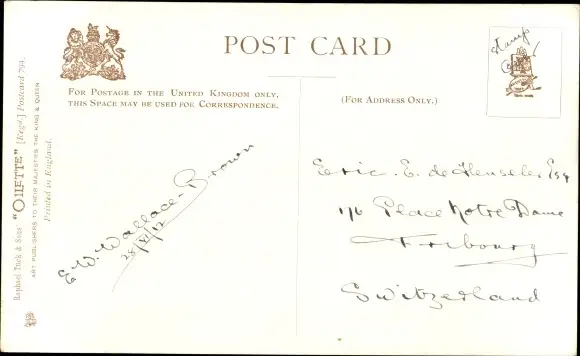 POST CARD
FOR POSTAGE IN THE UNITED KINGDOM ONLY,
THIS SPACE MAY BE USED FOR CORRESPONDENCE.
(FOR ADDRESS ONLY.)
Raphael Tuck & Sons' "OILETTE" [Regd.] Postcard 794.
ART PUBLISHERS TO THEIR MAJESTIES THE KING & QUEEN
Printed in England.
E. W. Wallace-Brown
Stamp
Eric. E. de Henseler Esq
176 Place Notre Dame
Fribourg
Switzerland